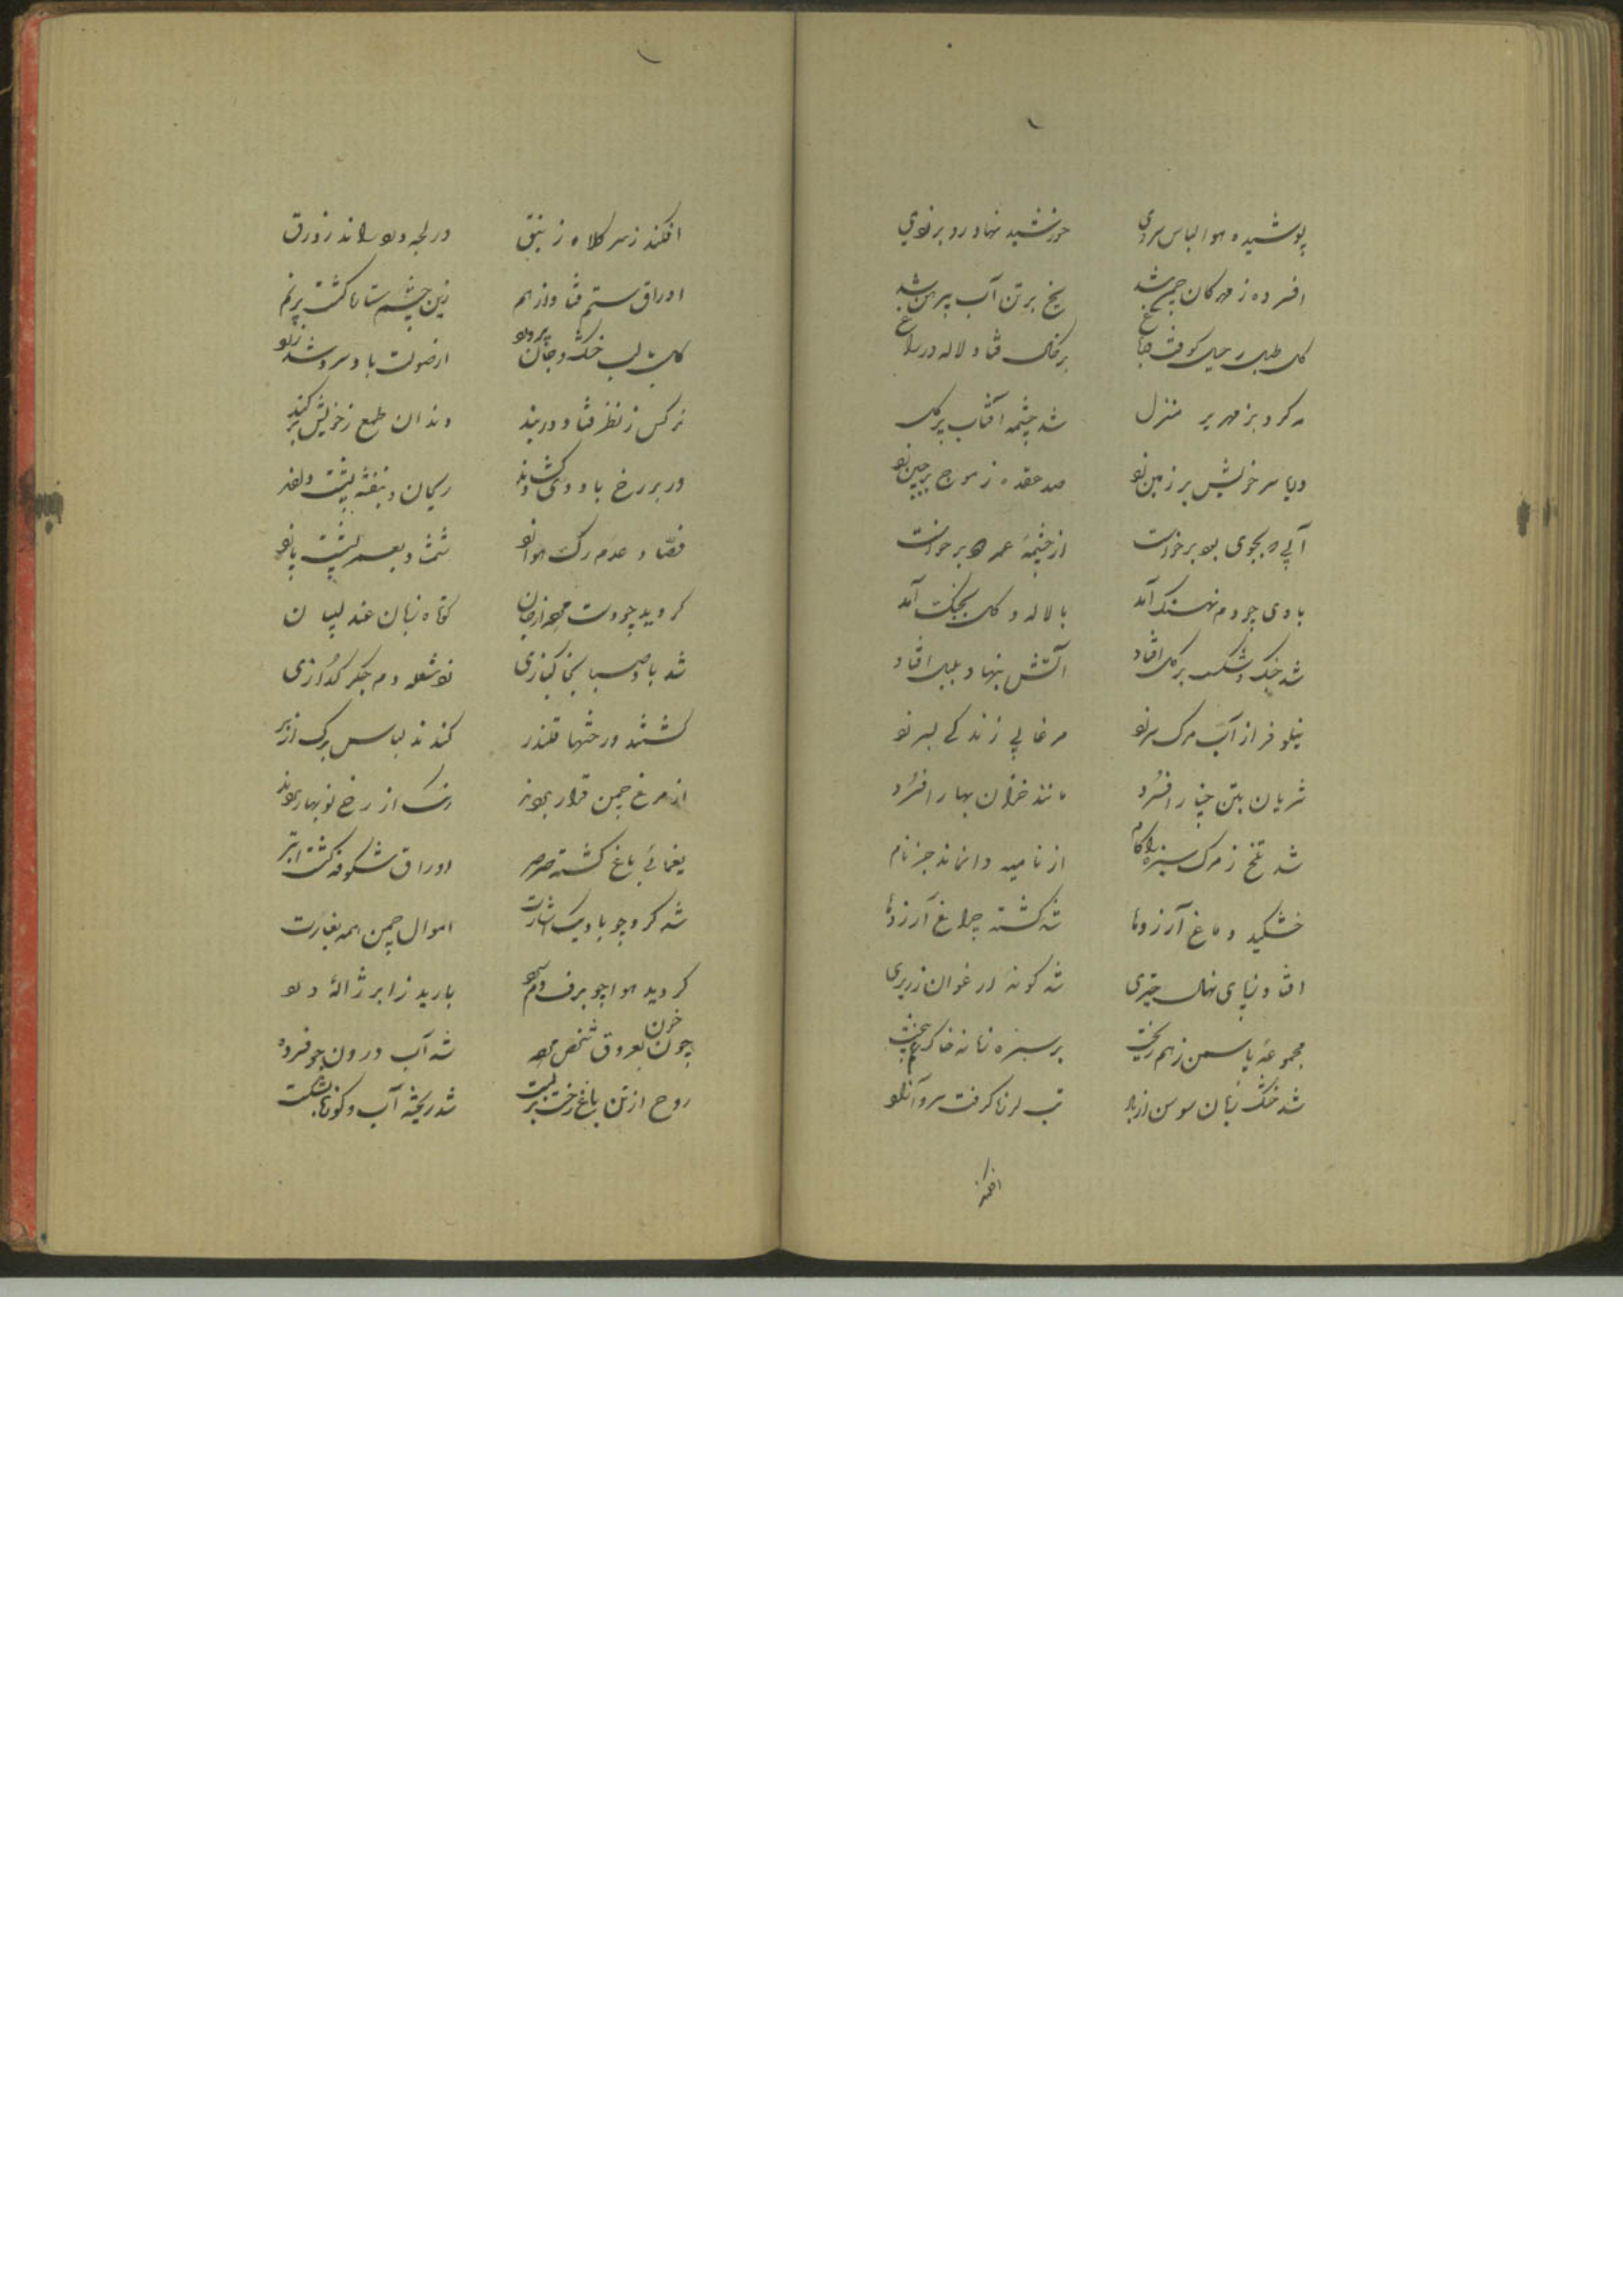 پوشیده هوا لباس سردی خورشید نهاد رو بزردی
افسرده ز مهرکان چمن شد یخ بر تن آب پیرهن شد
کل طبل رحیل کوفت در باغ بر خاک فتاد لاله در راغ
مه کرد بزمهریر منزل شد چشمه آفتاب پر کل
دریا سر خویش بر زمین زد صد عقده ز موج بر جبین زد
آبی بجوی بود برخواست از چشمه عمر برخواست
با دی چو دم نهنک آمد با لاله و کل بجنک آمد
شد خشک و شکست بر کل افتاد آتش بنهاد بلبل افتاد
نیلوفر از آب مرک سر زد مرغابی زندکی پر زد
شریان بتن چنار افسرد مانند خزان بهار افسرد
شد تلخ ز مرک سبزه را کام از نامیه وانماند جز نام
خشکید دماغ آرزوها شد کشته چراغ آرزوها
افتاد ز پای نهال خیری شد کونه ارغوان زریری
مجموعه یاسمن ز هم ریخت بر سبزه زمانه خاک غم بیخت
شد خشک زبان سوسن از تب لرزه کرفت سرو
افکند
افکند ز سر کلاه زنبق در لجه راند زورق
اوراق ستم فتاد از هم زین چشم ستاره کشت پر نم
کل لب خشک و جان از صولت باد سرد شد زرد
نرکس ز نظر فتاد در بند دندان طمع ز خویش بر کند
در بر رخ باد دی کشودند ریحان و بنفشه پشت
فصاد عدم رک هوا زد شمشاد بعمر پشت پا زد
کردید چو دست از جان کوتاه زبان عندلیبان
شد باد صبا بخاکبازی شعله دم جکر کدازی
کشتند درختها قلندر کندند لباس برک از بر
از مرغ چمن قرار بردند رنک از رخ نوبهار بردند
یغمائی باغ کشته صرصر اوراق شکوفه کشت ابتر
شد کرد چو باد یک اشارت اموال چمن همه بغارت
کردید هوا چو برف دم سرد بارید ز ابر ژاله درد
چون خون بعروق شخص مرده شد آب درون جو فسرده
روح از تن باغ رخت بر بست شد ریخته آب و کوزه بشکست